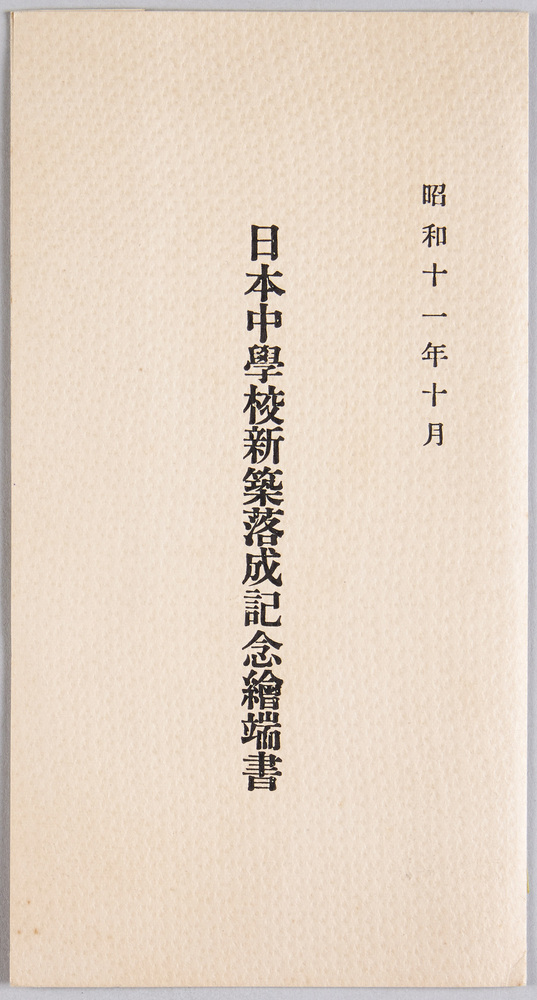 昭和十一年十月
日本中學校新築落成記念繪端書